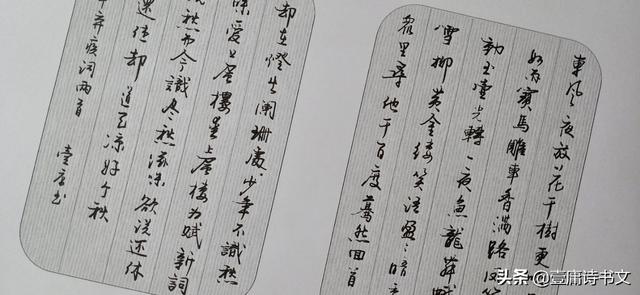 東風夜放花千樹更
如雨寶馬雕車香滿路
動玉壺光轉一夜魚龍舞
雪柳黄金縷笑語盈〻暗
眾里尋他千百度驀然回首
却在燈火闌珊處少年不識愁
味愛上層樓愛上層樓为賦新詞
愁而今識尽愁滋味欲说还休
还休却道天凉好个秋
辛弃疾词两首
壹庸书
头条@壹庸诗书文